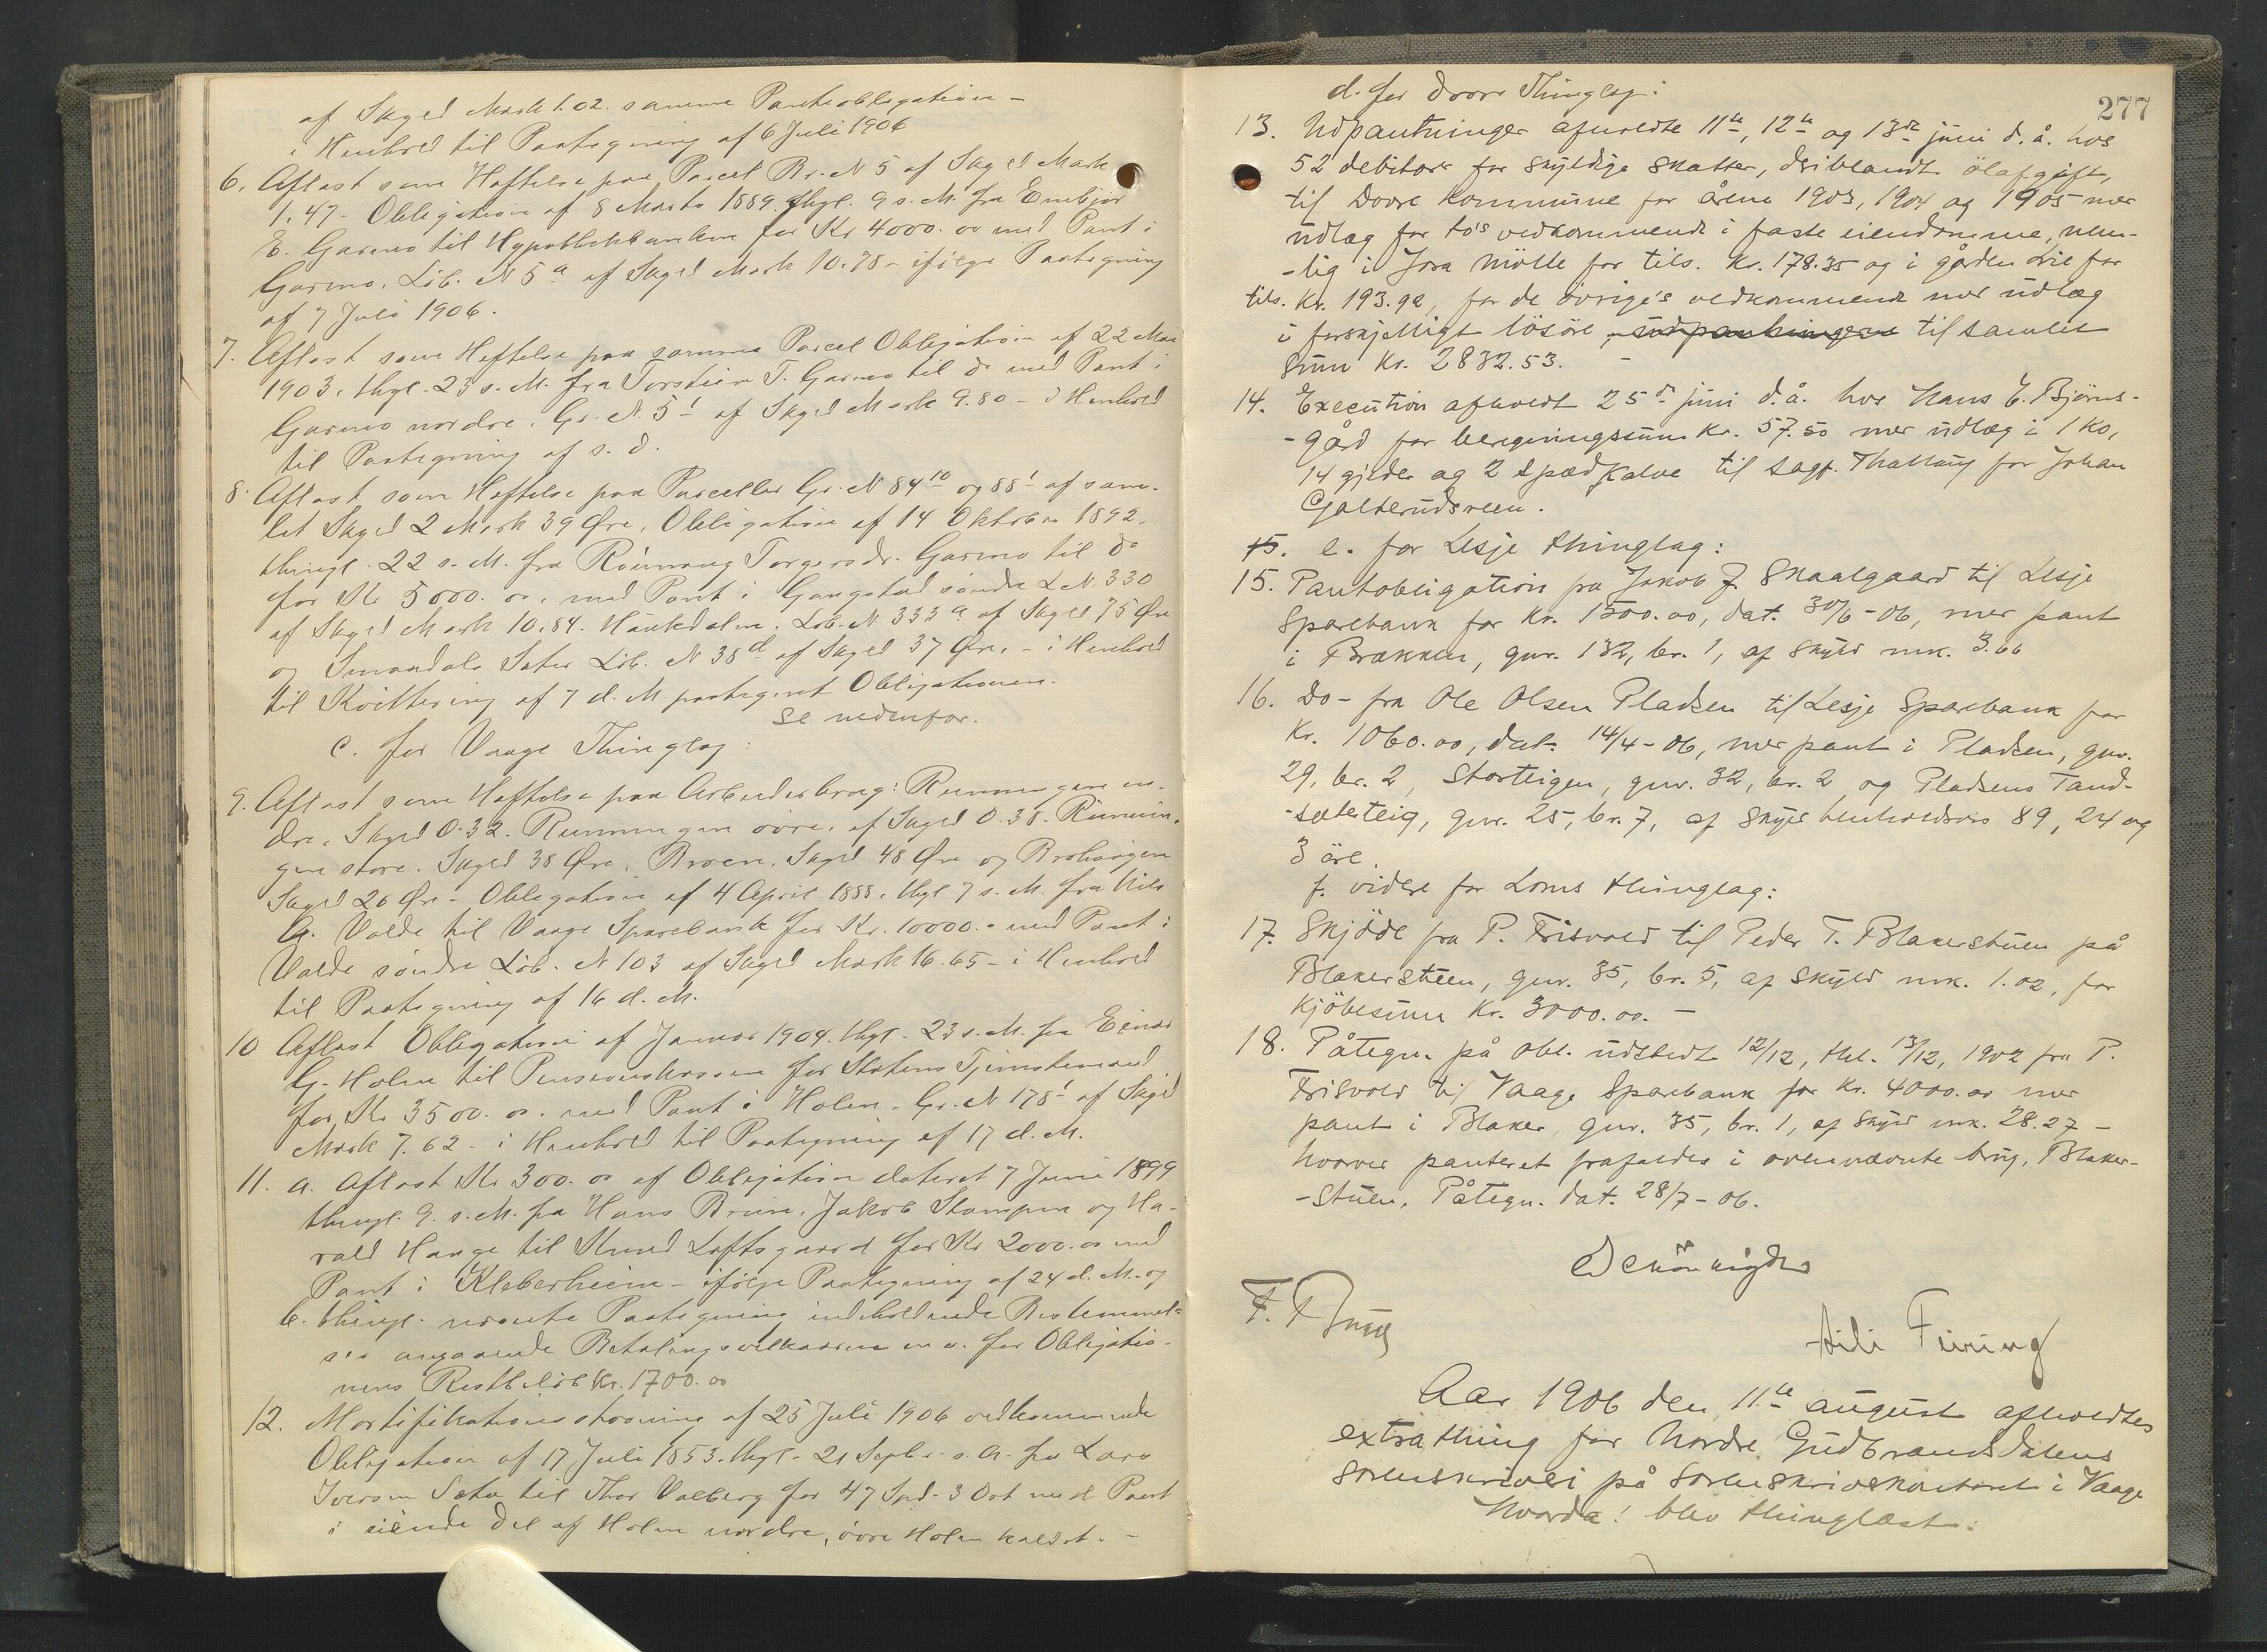 af Skyld Mark 1.02. samme Panteobligation –
i Henhold til Paategning af 6 Juli 1906
6. Aflæst som Heftelse paa Parcel Br. N 5 af Skyld Mark
1.47 – Obligation af 8 Marts 1889. thgl. 9 s. M. fra Embjør
E. Garmo til Hypothekbanken for Kr 4000.00 med Pant i
Garmo. Löb. N 5a af Skyld Mark 10.78 – ifølge Paategning
af 7 Juli 1906.
7. Aflæst som Heftelse paa samme Parcel Obligation af 22 Mai
1903. thgl. 23 s. M. fra Torstein T. Garmo til do med Pant i
Garmo nordre. Gr. N. 5¹ af Skyld Mark 9.80 – i Henhold
til Paategning af s. d.
8. Aflæst som Heftelse paa Parceller Gr. N 84¹⁰ og 88¹ af sam-
let Skyld 2 Mark 39 Øre. Obligation af 14 Oktober 1892.
thingl. 22 s. M. fra Rönnaug Torgersdr. Garmo til do
for Kr 5000.00. med Pant i Gangstad söndre L. N. 330
af Skyld Mark 10.84. Haukdalen. Löb. N 333a af Skyld 75 Øre
og Smaadals Sæter Löb. N 38d af Skyld 37 Øre. – i Henhold
til Kvittering af 7 d. M. paategnet Obligationen.
se nedenfor.
c. for Vaage Thinglag:
9. Aflæst som Heftelse paa Arbeiderbrug: Rumm gen ne-
dre, Skyld 0.32. Rummgen övre. af Skyld 0.38. Rumm-
gen store. Skyld 38 Øre. Broen. Skyld 48 Øre og Brohaugen
Skyld 26 Øre – Obligation af 4 April 1888. thgl 7 s. M. fra Nils
G. Valde til Vaage Sparebank for Kr. 10000.– med Pant i
Valde söndre Löb. N 103 af Skyld Mark 16.65 – i Henhold
til Paategning af 16 d. M.
10 Aflæst Obligation af Januar 1904. thgl. 23 s. M. fra Einar
G. Holen til Pensionskassen for Statens Tjenstemænd
for Kr 3500.00. med Pant i Holen. Gr. N 178¹ af Skyld
Mark 7.62 – i Henhold til Paategning af 17 d. M.
11. a. Aflæst Kr 300.00 af Obligation dateret 7 Juni 1899
thingl. 9. s. M. fra Hans Brun. Jakob Stampen og Ha-
rald Hange til Knud Loftsgaard for Kr 2000.00 med
Pant i Kleberheim – ifølge Paategning af 24 d. M. og
b. thingl. nævnte Paategning indeholdende Bestemmel-
ser angaaende Betalingsvilkaarene m. v. for Obligatio-
nens Restbelöb Kr. 1700.00
12. Mortifikationskjendelse af 25 Juli 1906 vedkommende
Obligation af 17 Juli 1853. thgl. 21 Septbr. s. A. fra Lars
Iversen Sæta til Thor Valberg for 47 Spd. 3 Ort med Pant
i eiende Del af Holen nordre, övre Holen kaldet. –
277
d. for Dovre Thinglag:
13. Udpantninger afholdte 11te, 12te og 13de juni d. å. hos
52 debitorer for skyldige skatter, deriblandt ölafgift,
til Dovre kommune for årene 1903, 1904 og 1905 med
udlæg for to's vedkommende i faste eiendomme, nem-
-lig i Jora mölle for tils. kr. 178.35 og i gården Lie for
tils. kr. 193.92, for de övrige's vedkommende med udlæg
i forskjelligt lösöre, udpantningerne til samlet
sum kr. 2832.53. –
14. Execution afholdt 25de juni d. å. hos Hans E. Björns-
-gård for beregningssum kr. 57.50 med udlæg i 1 ko,
14 gjeder og 2 spædkalve til sagf. Thallaug for Johan
Galterudsveen.
15. e. for Lesje thinglag:
15. Pantobligation fra Jakob J. Skaalgaard til Lesje
Sparebank for kr. 1500.00, dat. 30/6 – 06, med pant
i Brækken, gnr. 132, br. 1, af skyld mrk. 3.66
16. Do – fra Ole Olsen Pladsen til Lesje Sparebank for
kr. 1060.00, dat. 14/4 – 06, med pant i Pladsen, gnr.
29, br. 2, Storteigen, gnr. 32, br. 2 og Pladsens Tand-
-sæterteig, gnr. 25, br. 7, af skyld henholdsvis 89, 24 og
3 öre.
f. videre for Loms thinglag:
17. Skjöde fra P. Frisvold til Peder T. Blakerstuen på
Blakerstuen, gnr. 35, br. 5, af skyld mrk. 1.02, for
kjöbesum kr. 3000.00. –
18. Påtegn. på obl. udstedt 12/12, thl. 13/12, 1902 fra P.
Frisvold til Vaage Sparebank for kr. 4000.00 med
pant i Blaker, gnr. 35, br. 1, af skyld mrk. 28.27 –
hvorved panteret frafaldes i ovennævnte brug, Blaker-
-stuen. Påtegn. dat. 28/7 – 06.
Feiring
Aar 1906 den 11te august afholdtes
extrathing for Nordre Gudbrandsdalens
sorenskriveri på sorenskriverkontoret i Vaage
Hvorda: blev thinglæst: